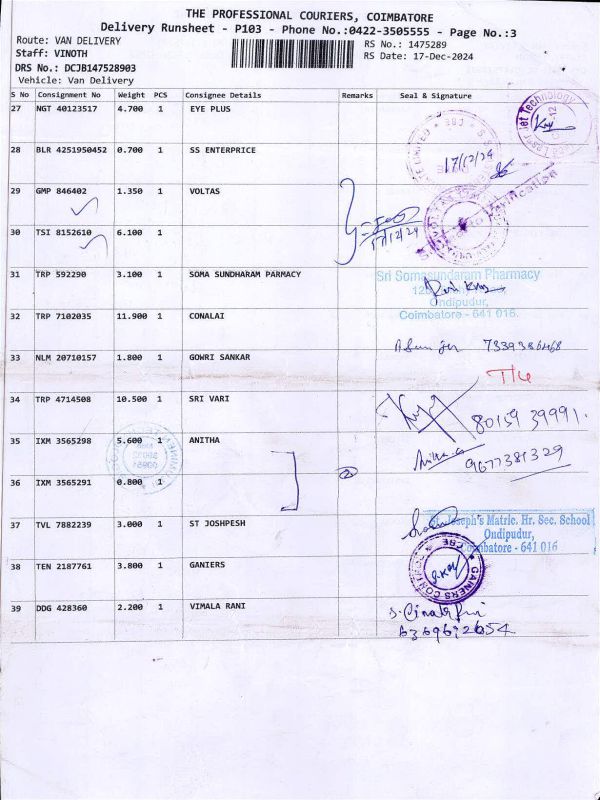 THE PROFESSIONAL COURIERS, COIMBATORE
Delivery Runsheet - P103 - Phone No.:0422-3505555 - Page No.:3
Route: VAN DELIVERY
RS No.: 1475289
Staff: VINOTH
RS Date: 17-Dec-2024
DRS No.: DCJB147528903
Vehicle: Van Delivery
S No Consignment No Weight PCS Consignee Details Remarks Seal & Signature
27 NGT 40123517 4.700 1 EYE PLUS
Jet Technology
28 BLR 4251950452 0.700 1 SS ENTERPRICE
17/12/24
29 GMP 846402 1.350 1 VOLTAS
30 TSI 8152610 6.100 1
17/12/24
31 TRP 592290 3.100 1 SOMA SUNDHARAM PARMACY
Sri Somasundaram Pharmacy
Ondipudur,
Coimbatore - 641 016.
32 TRP 7102035 11.900 1 CONALAI
33 NLM 20710157 1.800 1 GOWRI SANKAR
34 TRP 4714508 10.500 1 SRI VARI
80159 39991.
35 IXM 3565298 5.600 1 ANITHA
9677381329
36 IXM 3565291 0.800 1
37 TVL 7882239 3.000 1 ST JOSHPESH
St. Joseph's Matric. Hr. Sec. School
Ondipudur,
Coimbatore - 641 016
38 TEN 2187761 3.800 1 GANIERS
39 DDG 428360 2.200 1 VIMALA RANI